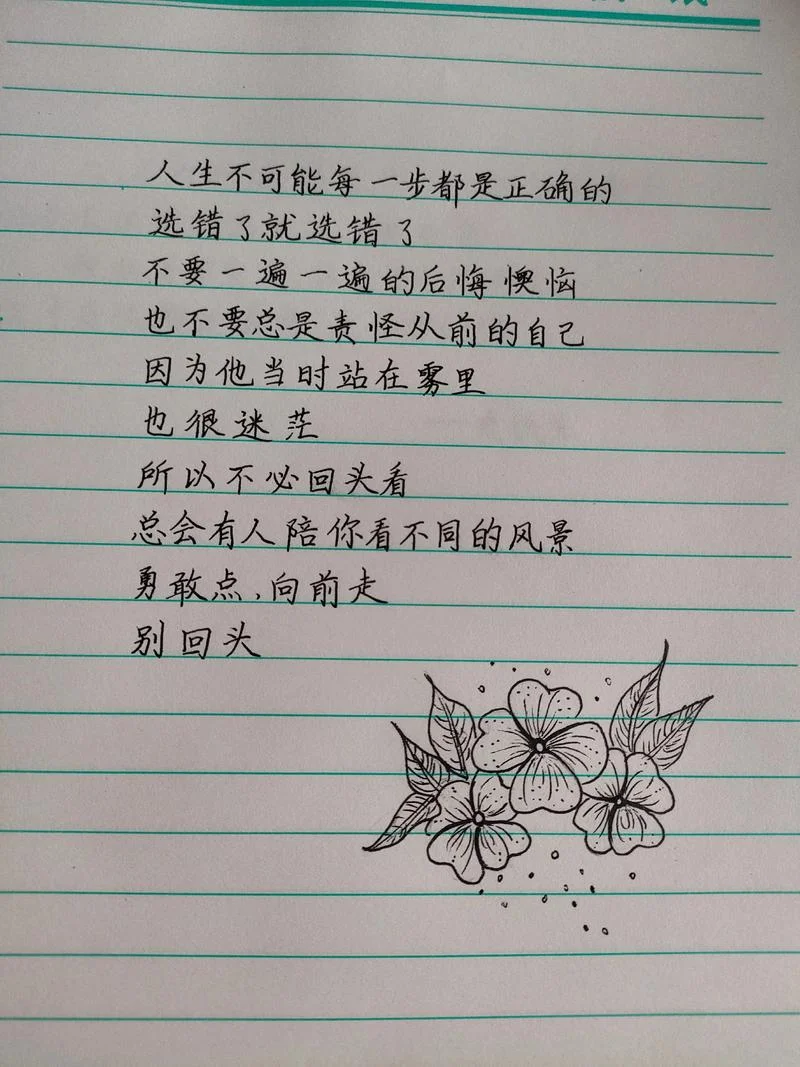 人生不可能每一步都是正确的
选错了就选错了
不要一遍一遍的后悔懊恼
也不要总是责怪从前的自己
因为他当时站在雾里
也很迷茫
所以不必回头看
总会有人陪你看不同的风景
勇敢点,向前走
别回头